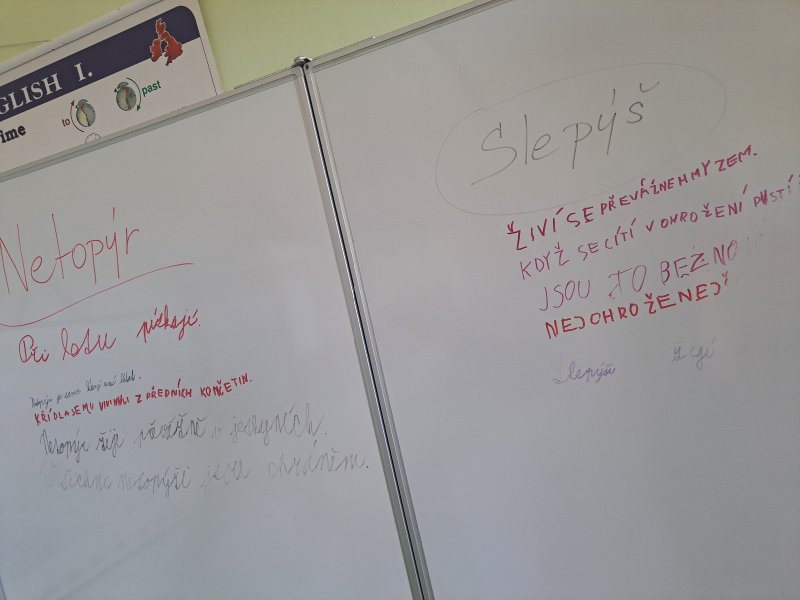 GLISH I.
ime
to
past
Netopýr
Při letu pískají.
KŘÍDLA SE MU VIVINULI Z PŘEDNÍCH KONČETIN.
Netopýr žije převážně v jeskyních.
Všichni netopýři jsou chráněni.
Slepýš
ŽIVÍ SE PŘEVÁŽNEH MYZEM.
KDYŽ SE CÍTÍ V OHROŽENÍ PUSTÍ
JSOU TO BEZNO
NEJOHROŽENEJŠ
Slepýši žijí